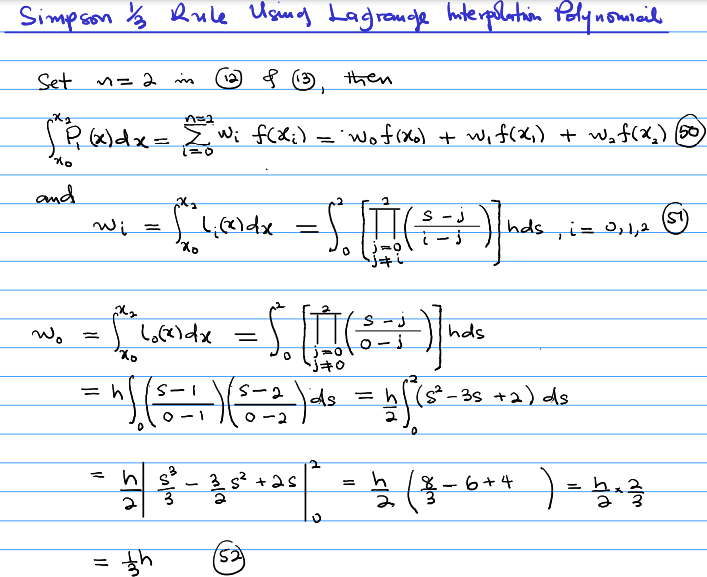 Simpson ⅓ Rule Using Lagrange Interpolation Polynomial
Set n = 2 in (12) & (13), then
∫_{x₀}^{x₂} P₁(x)dx = Σ_{i=0}^{n=2} wᵢ f(xᵢ) = w₀f(x₀) + w₁f(x₁) + w₂f(x₂) (50)
and
wᵢ = ∫_{x₀}^{x₂} Lᵢ(x)dx = ∫_0^2 [∏_{j=0, j≠i}^{2} ((s-j)/(i-j))] hds, i = 0,1,2 (51)
w₀ = ∫_{x₀}^{x₂} L₀(x)dx = ∫_0^2 [∏_{j=0, j≠0}^{2} ((s-j)/(0-j))] hds
= h∫_0^2 ((s-1)/(0-1))((s-2)/(0-2)) ds = h/2 ∫_0^2 (s² - 3s + 2) ds
= h/2 | s³/3 - 3/2 s² + 2s |_0^2 = h/2 (8/3 - 6 + 4) = h/2 × 2/3
= ⅓h (52)